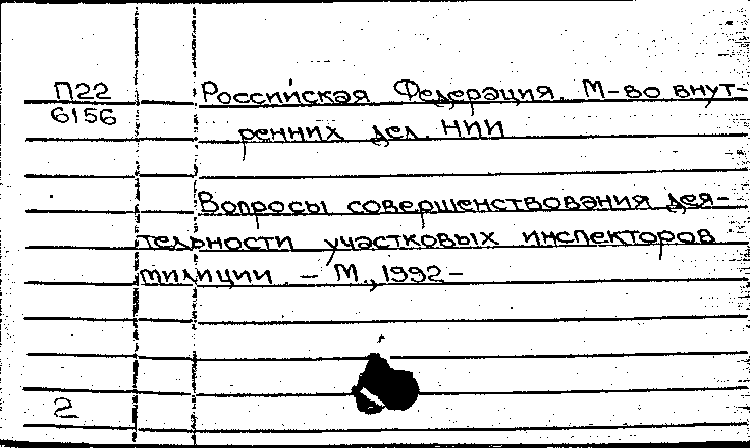 П22
6156
Российская Федерация. М-во внут-
ренних дел. НИИ
Вопросы совершенствования дея-
тельности участковых инспекторов
милиции. – М., 1992 –
2